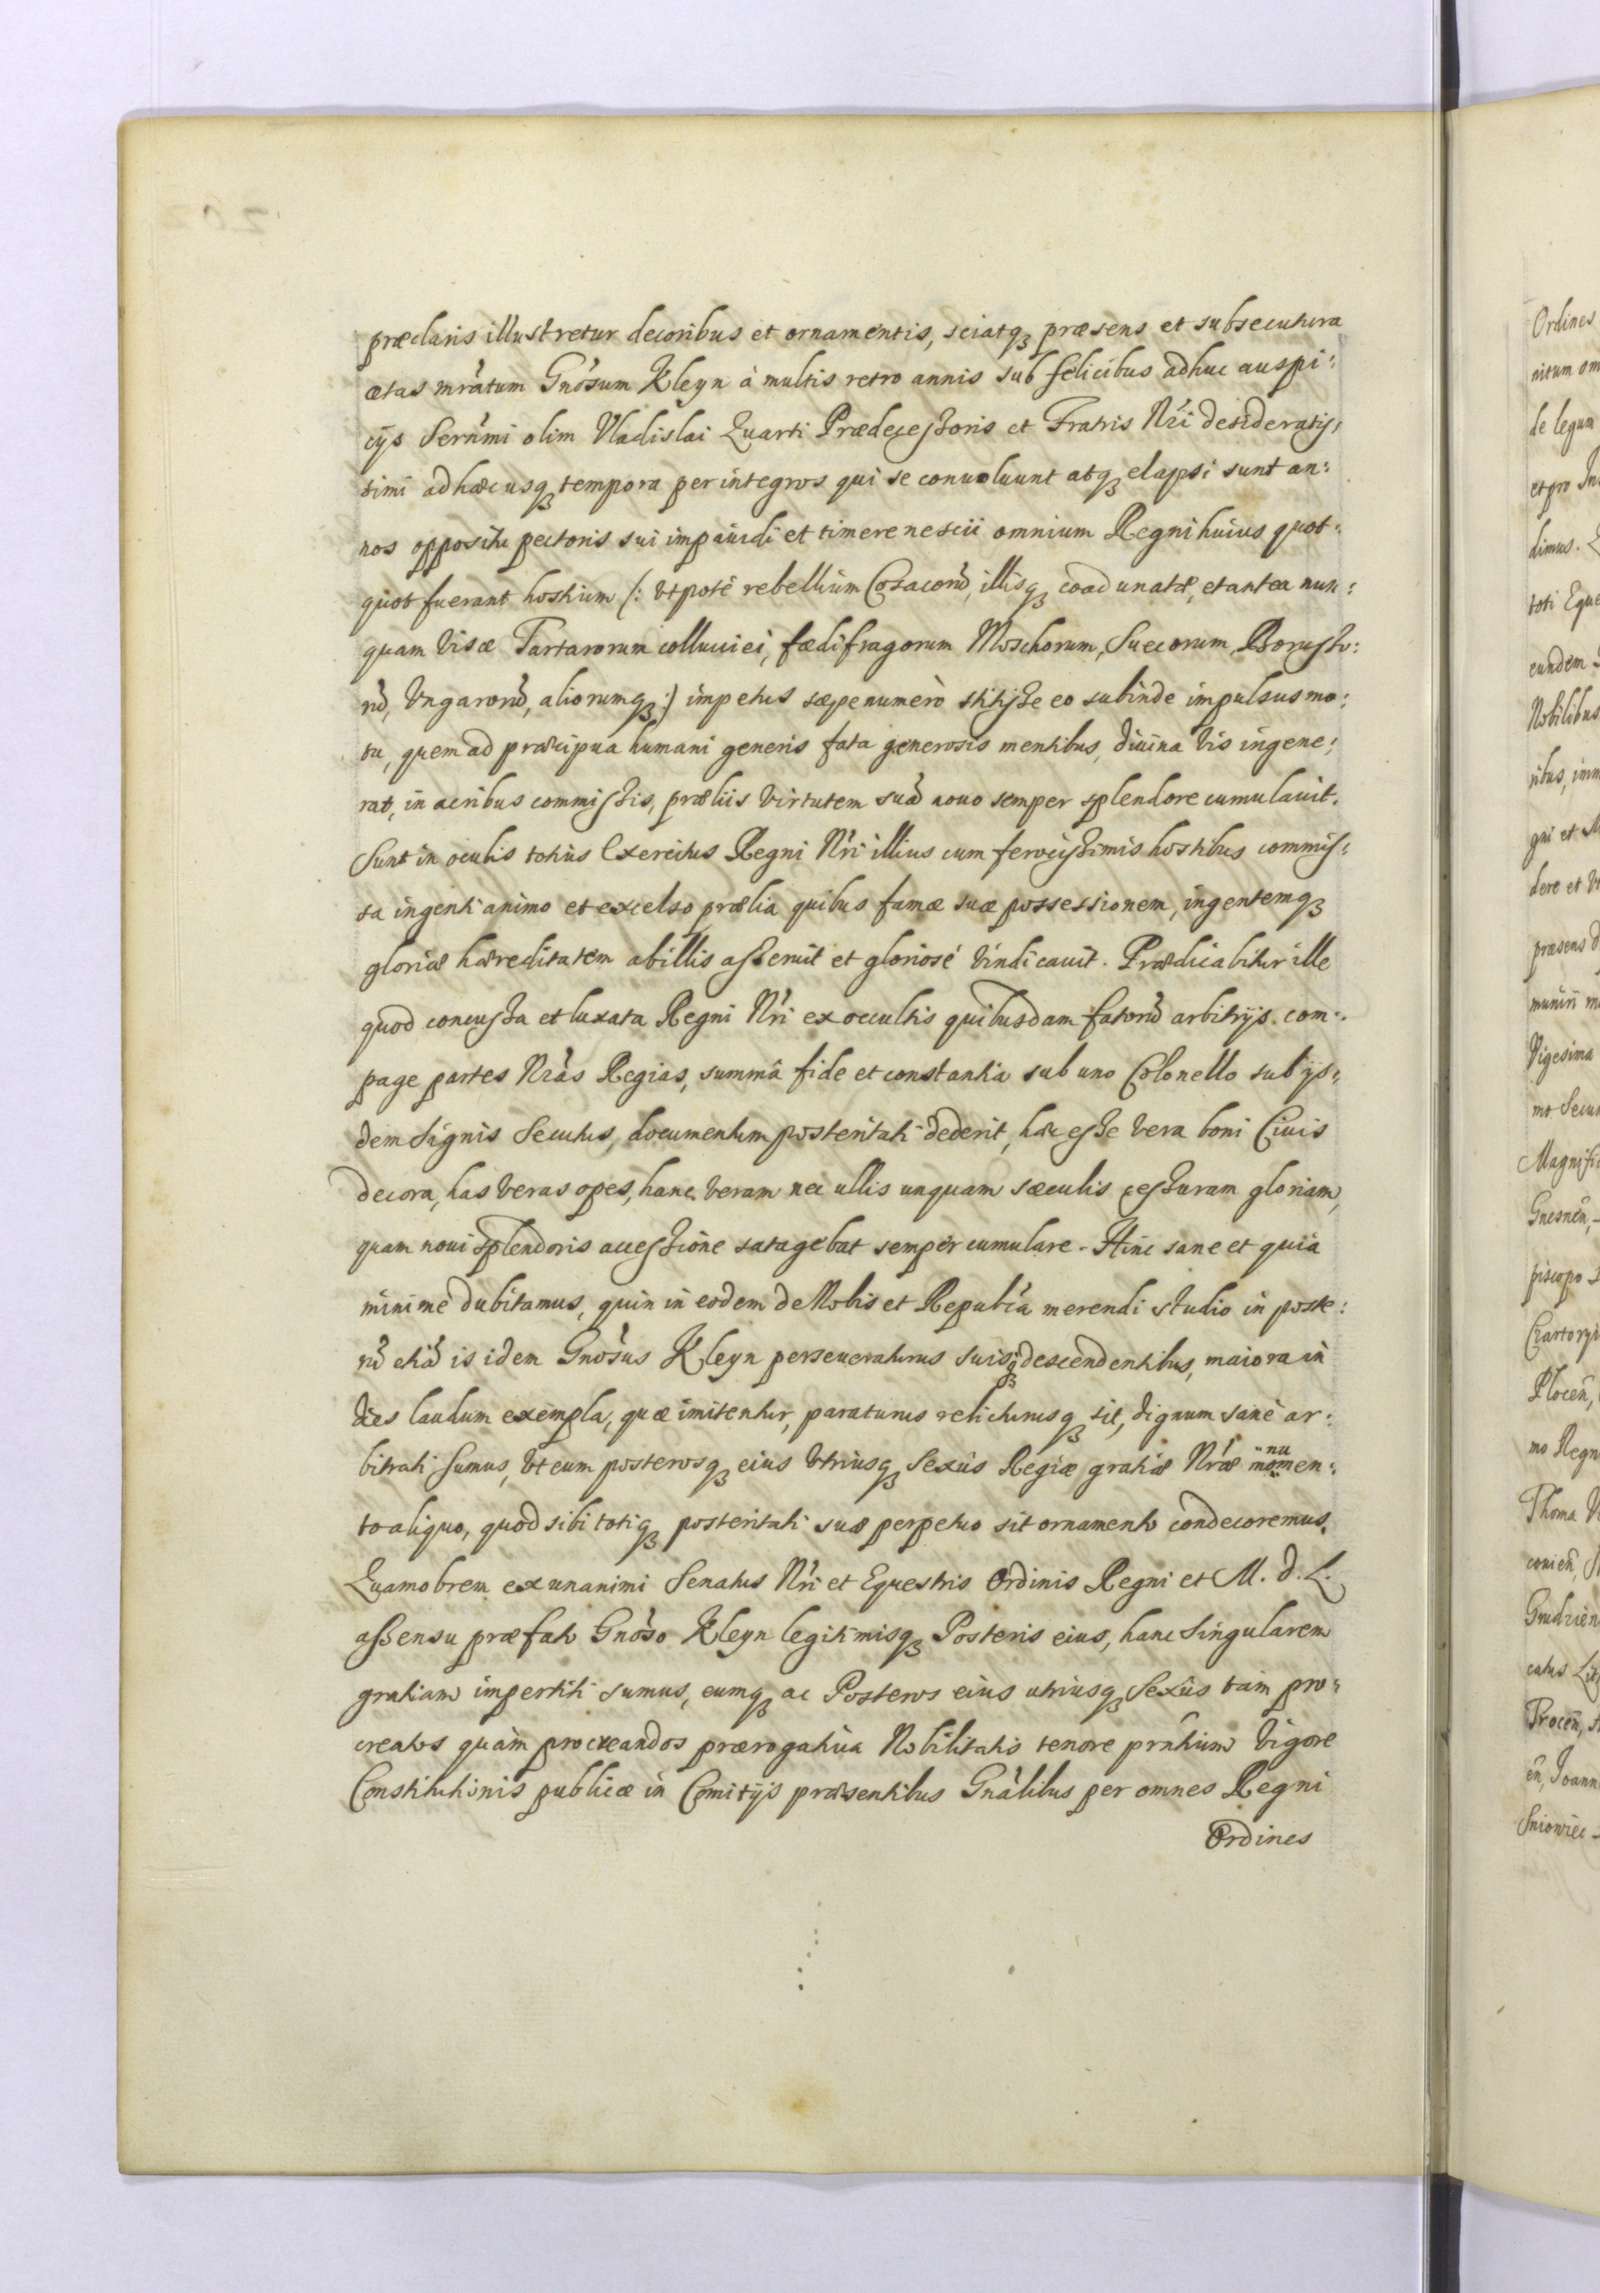 præclaris illustretur decoribus et ornamentis, sciatq₃ præsens et subsecutura
ætas mrãtum Gnõsum Kleyn à multis retro annis sub felicibus adhuc auspi:
cÿs Sernmi olim Vladislai Quarti Prædecessoris et Fratris Nri desideratis,
simi ad hæc usq₃ tempora per integros qui se conuoluunt atq₃ elapsi sunt an:
nos oppositu pectoris sui impauidi et timere nescii omnium Regni huius quot:
quot fuerant hostium /: Vtpote rebellium Cosacorũ, illisq₃ coadunatæ, et antea nun:
quam Visæ Tartarorum colluuiei, fædifragorum Moschorum, Suecorum, Borusso:
rũ, Vngarorũ, aliorumq₃ :/ impetus sæpenumerò stitisse eo subinde impulsus mo:
tu, quem ad præcipua humani generis fata generosis mentibus, diuina Vis ingene:
rat, in acribus commissis, præliis Virtutem suã nouo semper splendore cumulauit.
Sunt in oculis totius Exercitus Regni Nri illius cum ferocissimis hostibus commis:
sa ingenti animo et excelso prælia quibus famæ suæ possessionem, ingentemq₃
gloriæ hæreditatem ab illis asseruit et gloriosé Vindicauit. Prædicabitur ille
quod concussa et luxata Regni Nri ex occultis quibusdam fatorũ arbitrÿs com:
page partes Nrãs Regias, summâ fide et constantia sub uno Colonello sub ÿs:
dem signis Secutus, documentum posteritati dederit, hæc esse Vera boni Ciuis
decora, has Veras opes, hanc Veram nec ullis unquam sæculis cessuram gloriam,
quam noui splendoris accessione satagebat semper cumulare. Hinc sane et quia
minime dubitamus, quin in eodem de Nobis et Republca merendi studio in poste:
rũ etiã is idem Gnõsus Kleyn perseueraturus suisq₃ descendentibus, maiora in
dies laudum exempla, quæ imitentur, paraturus relicturusq₃ sit, dignum sanè ar:
bitrati sumus, Vt eum posterosq₃ eius Vtriusq₃ Sexûs Regiæ gratiæ Nræ nu momen:
to aliquo, quod sibi totiq₃ posteritati suæ perpetuo sit ornamento condecoremus.
Quamobrem ex unanimi Senatus Nri et Equestris Ordinis Regni et M. d. L.
assensu præfato Gnõso Kleyn legitimisq₃ Posteris eius, hanc singularem
gratiam impertiti sumus, eumq₃ ac Posteros eius utriusq₃ Sexûs tàm pro:
creatos quàm procreandos prærogatiua Nobilitatis tenore prntium Vigore
Constitutionis publicæ in Comitÿs præsentibus Gnãlibus per omnes Regni
Ordines
Ordines
nitum om
de legum
et pro In
dimus.
toti Eque
eundem
Nobilibus
ribus, imm
gni et M
dere et V
præsens d
muniri m
Vigesima
mo Secun
Magnific
Gnesnen,
piscopo
Czartorys
Plocen,
mo Regn
Thoma
couien,
Grudzien
catus Lit
Trocen,
en, Joann
Sniowiec